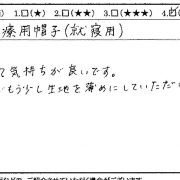 1.□(★) 2.□(★★) 3.□(★★★) 4.☑
療用帽子(就寝用)
て気持ちが良いです。
もう少し生地を薄めにしていただい